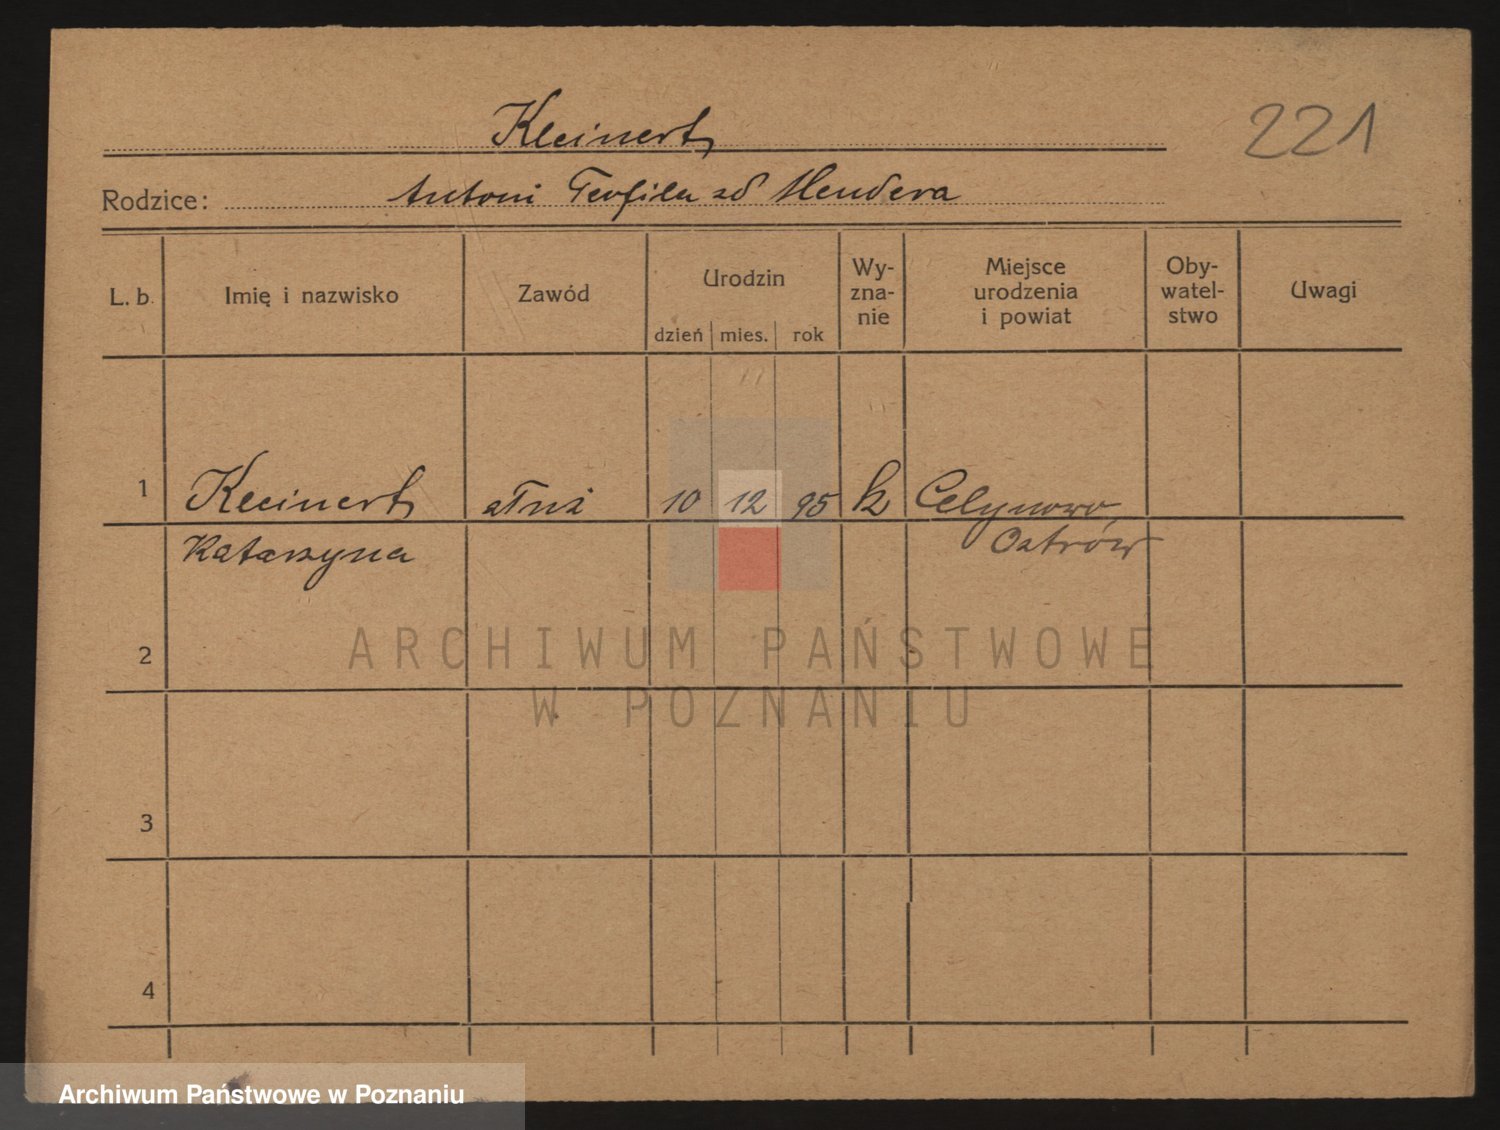 Kleinert
221
Rodzice: Antoni Teofila zd Mendera
L. b. Imię i nazwisko Zawód Urodzin dzień mies. rok Wy-zna-nie Miejsce urodzenia i powiat Oby-watel-stwo Uwagi
1 Kleinert służ 10 12 95 k Celynowo
Katarzyna Ostrów
2
ARCHIWUM PAŃSTWOWE
W POZNANIU
3
4
Archiwum Państwowe w Poznaniu